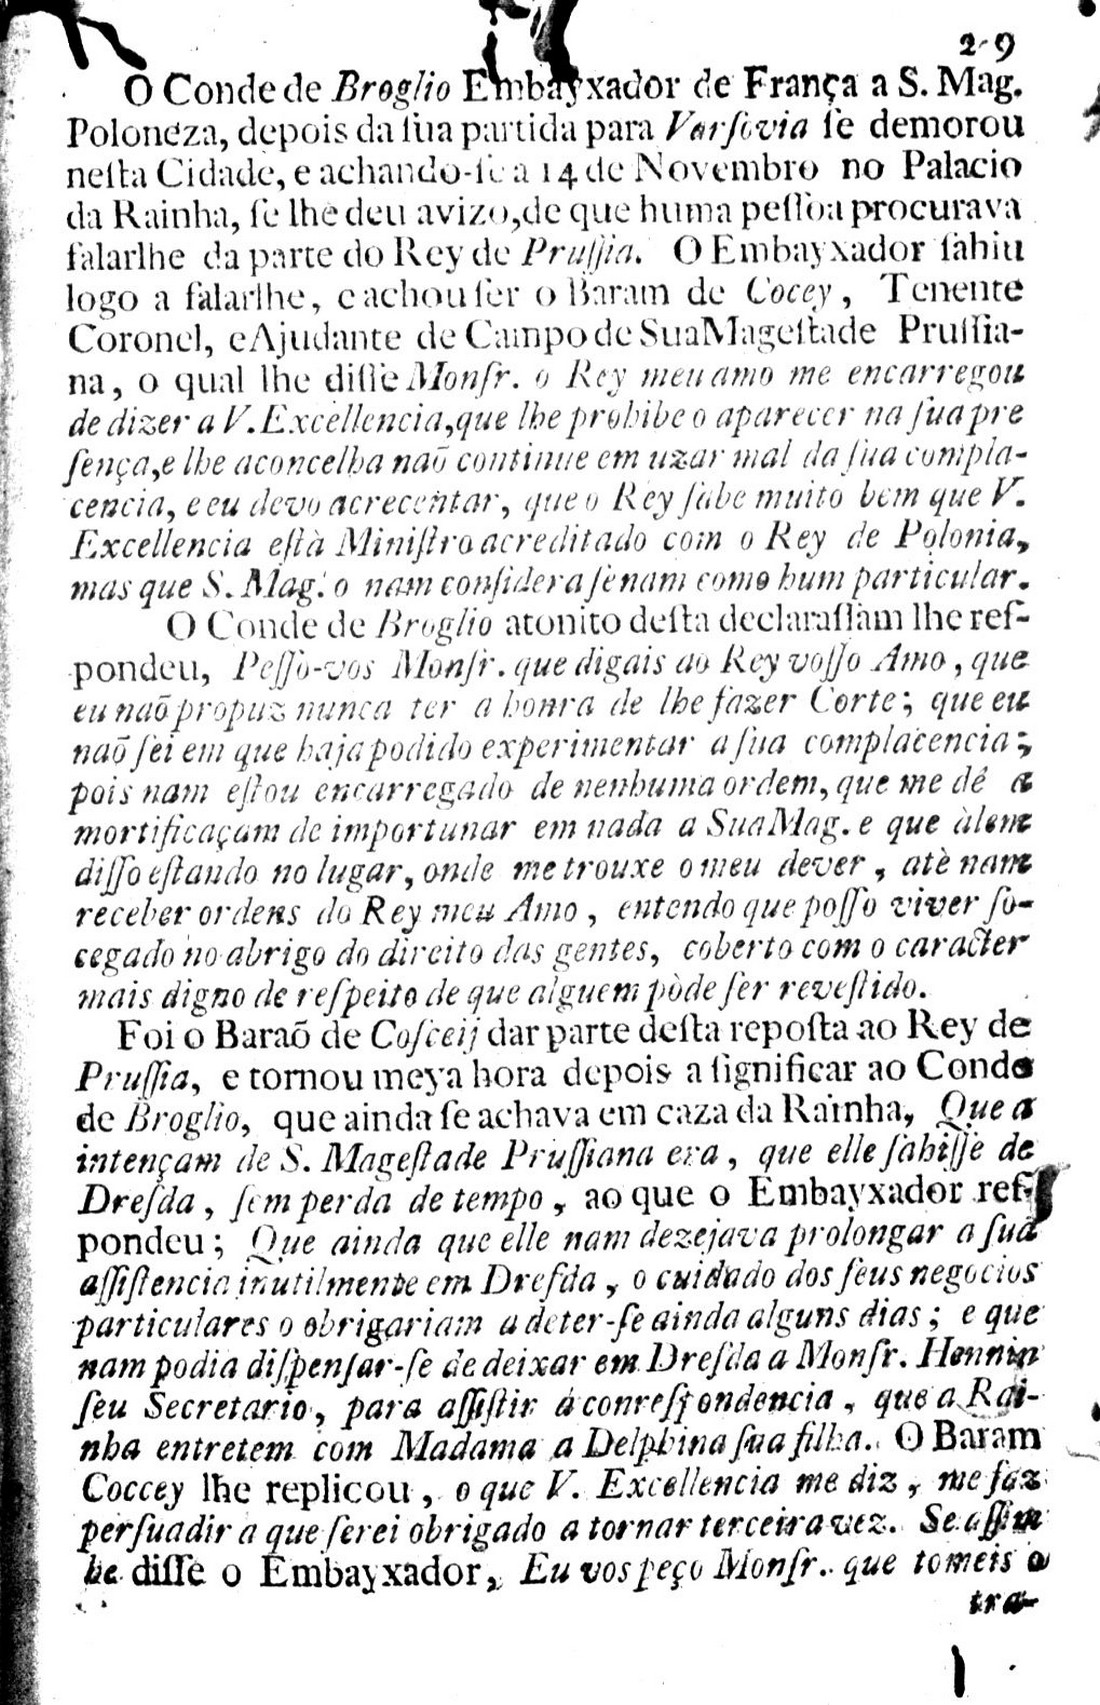 29
O Conde de Broglio Embayxador de França a S. Mag.
Poloneza, depois da sua partida para Varsovia se demorou
nesta Cidade, e achando-se a 14 de Novembro no Palacio
da Rainha, se lhe deu avizo, de que huma pessoa procurava
falarlhe da parte do Rey de Prussia. O Embayxador sahiu
logo a falarlhe, e achou ser o Baram de Cocey, Tenente
Coronel, e Ajudante de Campo de Sua Magestade Prussia-
na, o qual lhe disse Monsr. o Rey meu amo me encarregou
de dizer a V. Excellencia, que lhe prohibe o aparecer na sua pre
sença, e lhe aconcelha naõ continue em uzar mal da sua compla-
cencia, e eu devo acrecentar, que o Rey sabe muito bem que V.
Excellencia està Ministro acreditado com o Rey de Polonia,
mas que S. Mag. o nam considera senam como hum particular.
O Conde de Broglio atonito desta declarassam lhe res-
pondeu, Pesso-vos Monsr. que digais ao Rey vosso Amo, que
eu naõ propuz nunca ter a honra de lhe fazer Corte; que eu
naõ sei em que haja podido experimentar a sua complacencia;
pois nam estou encarregado de nenhuma ordem, que me dê a
mortificaçam de importunar em nada a Sua Mag. e que àlem
disso estando no lugar, onde me trouxe o meu dever, atè nam
receber ordens do Rey meu Amo, entendo que posso viver so-
cegado no abrigo do direito das gentes, coberto com o caracter
mais digno de respeito de que alguem pòde ser revestido.
Foi o Baraõ de Cosceij dar parte desta reposta ao Rey de
Prussia, e tornou meya hora depois a significar ao Conde
de Broglio, que ainda se achava em caza da Rainha, Que a
intençam de S. Magestade Prussiana era, que elle sahisse de
Dresda, sem perda de tempo, ao que o Embayxador res-
pondeu; Que ainda que elle nam dezejava prolongar a sua
assistencia inutilmente em Dresda, o cuidado dos seus negocios
particulares o obrigariam a deter-se ainda alguns dias; e que
nam podia dispensar-se de deixar em Dresda a Monsr. Hennin
seu Secretario, para assistir á conrespondencia, que a Rai-
nha entretem com Madama a Delphina sua filha. O Baram
Coccey lhe replicou, o que V. Excellencia me diz, me faz
persuadir a que serei obrigado a tornar terceira vez. Se assim
he disse o Embayxador, Eu vos peço Monsr. que tomeis o
tra-